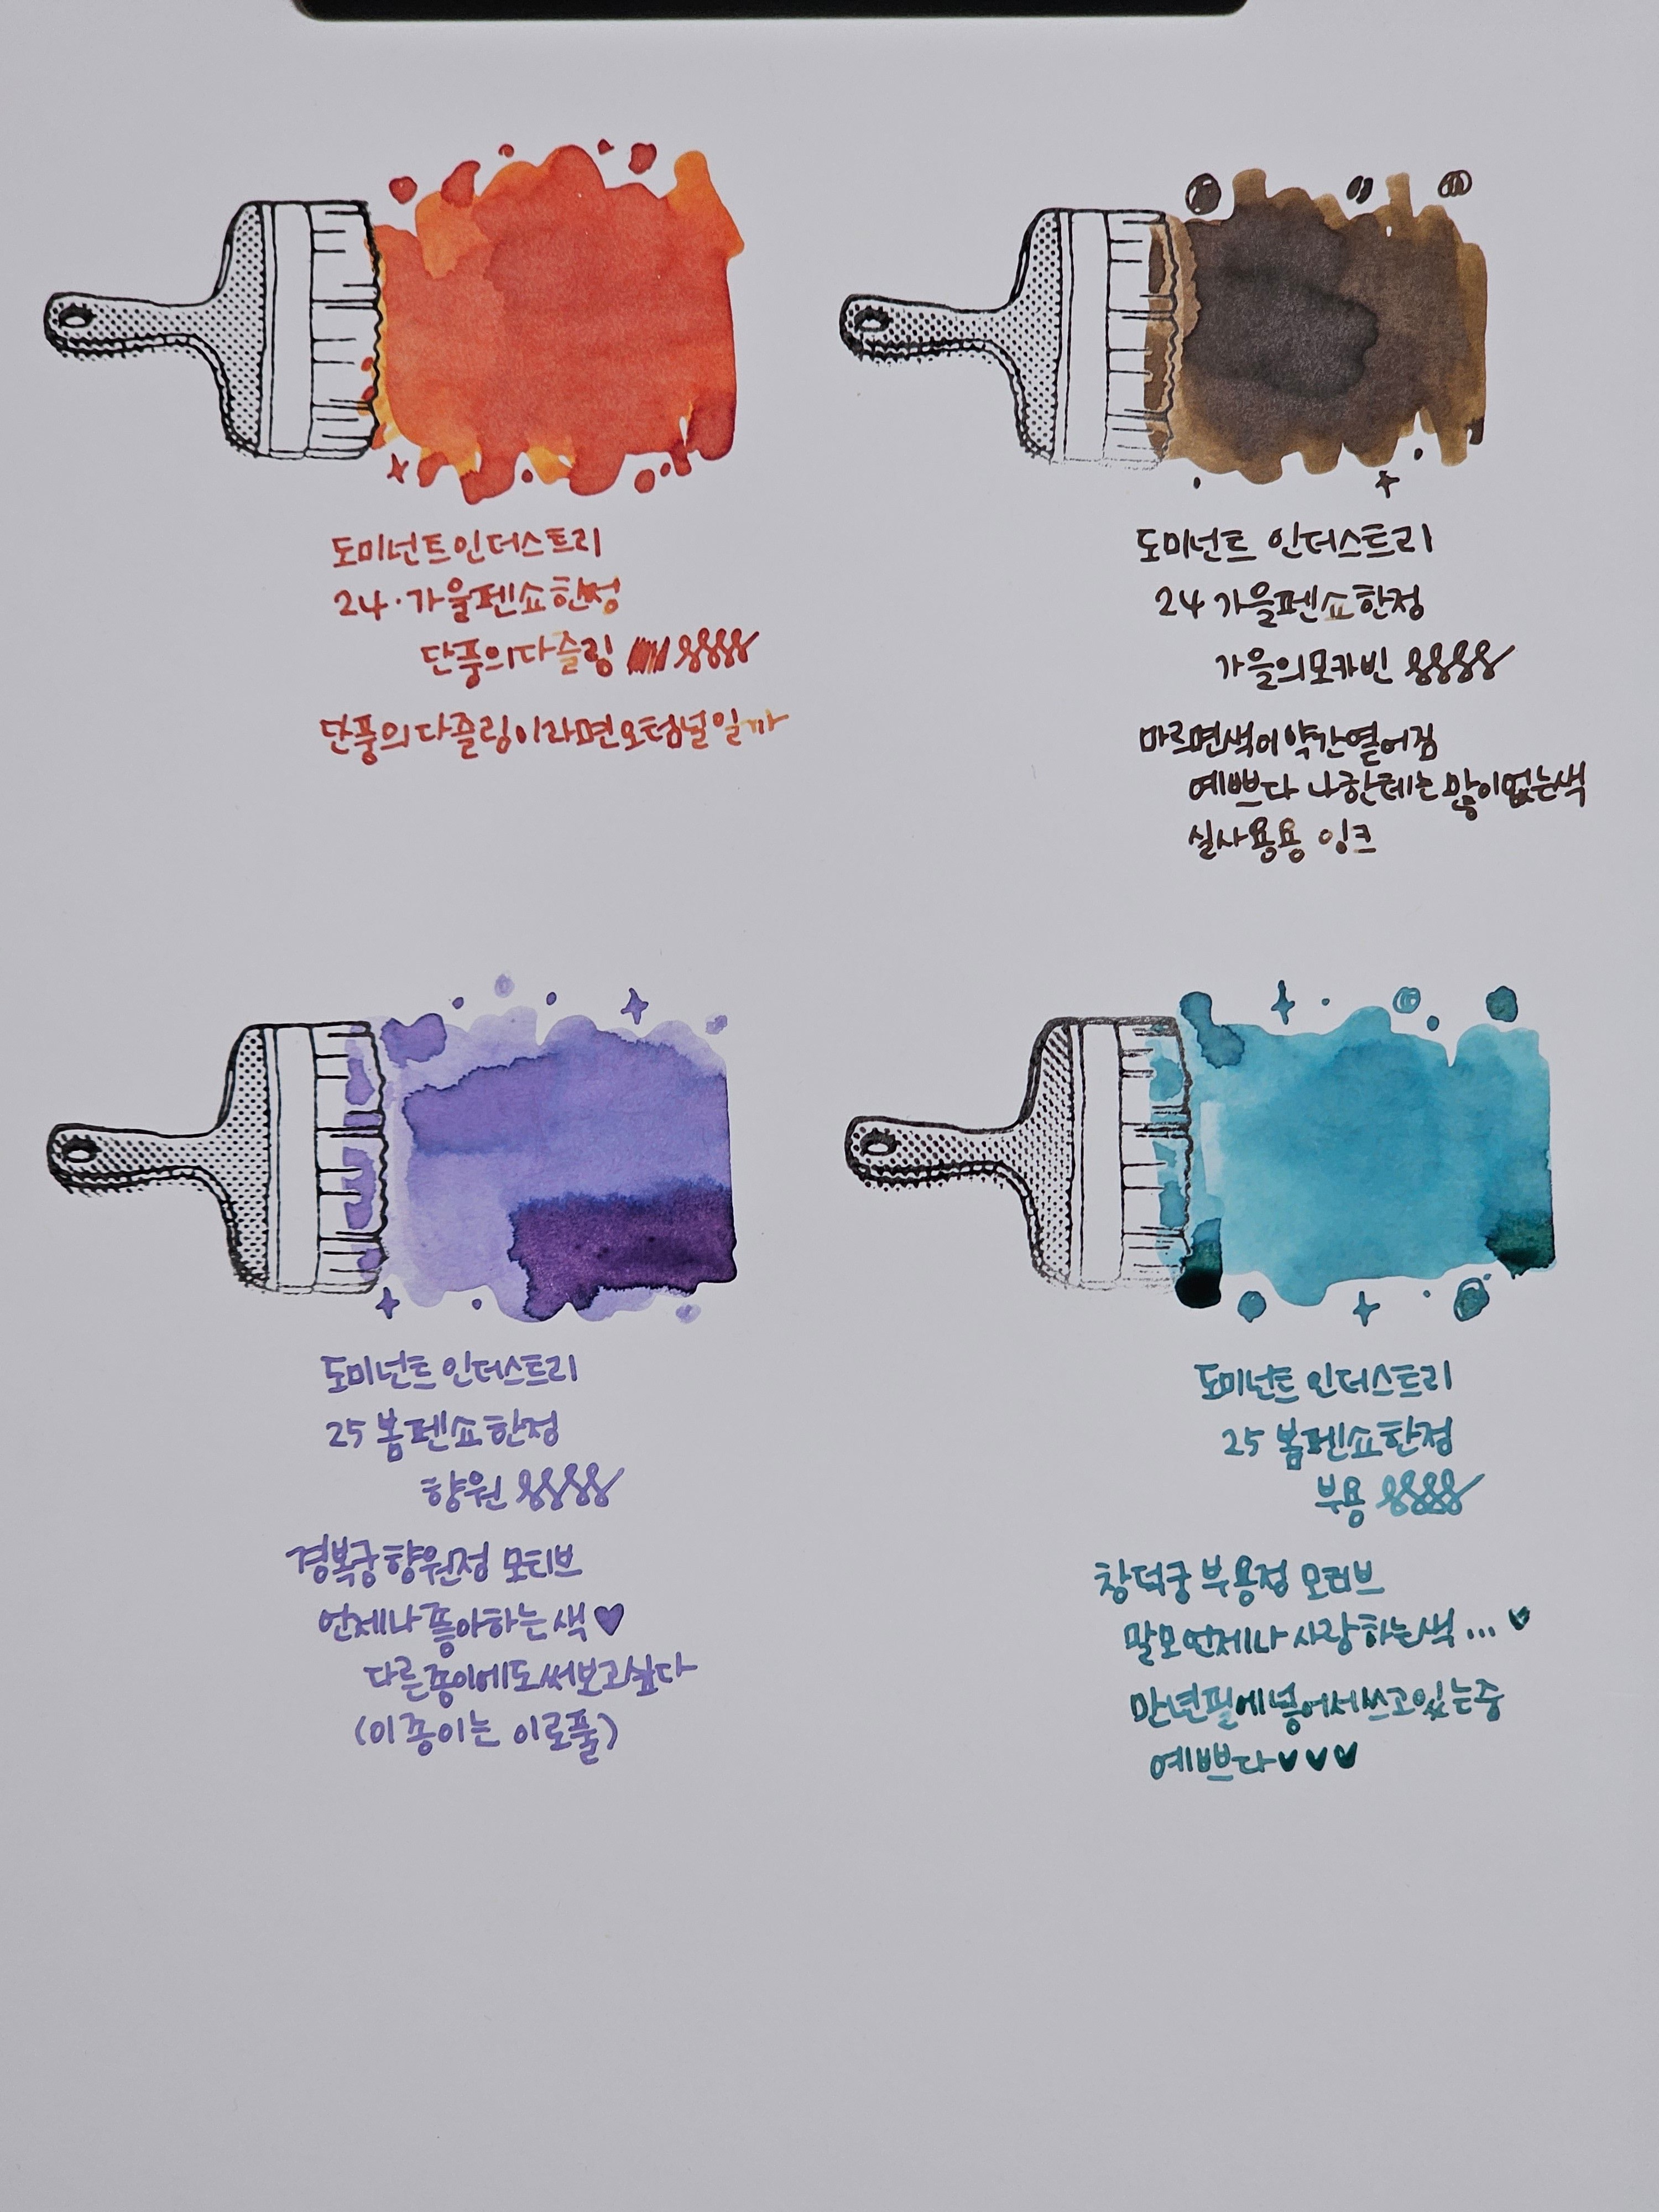 도미넌트인더스트리
24·가을펜쇼한정
단풍의다즐링
단풍의다즐링이라면오텀널일까
도미넌트 인더스트리
24 가을펜쇼한정
가을의모카빈
마르면색이약간옅어짐
예쁘다 나한테는많이없는색
실사용용 잉크
도미넌트 인더스트리
25 봄펜쇼한정
향원
경복궁향원정 모티브
언제나 좋아하는 색♥
다른종이에도써보고싶다
(이종이는 이로풀)
도미넌트 인더스트리
25 봄펜쇼한정
부용
창덕궁 부용정 모티브
말모언제나 사랑하는색...♥
만년필에넣어서쓰고있는중
예쁘다♥♥♥